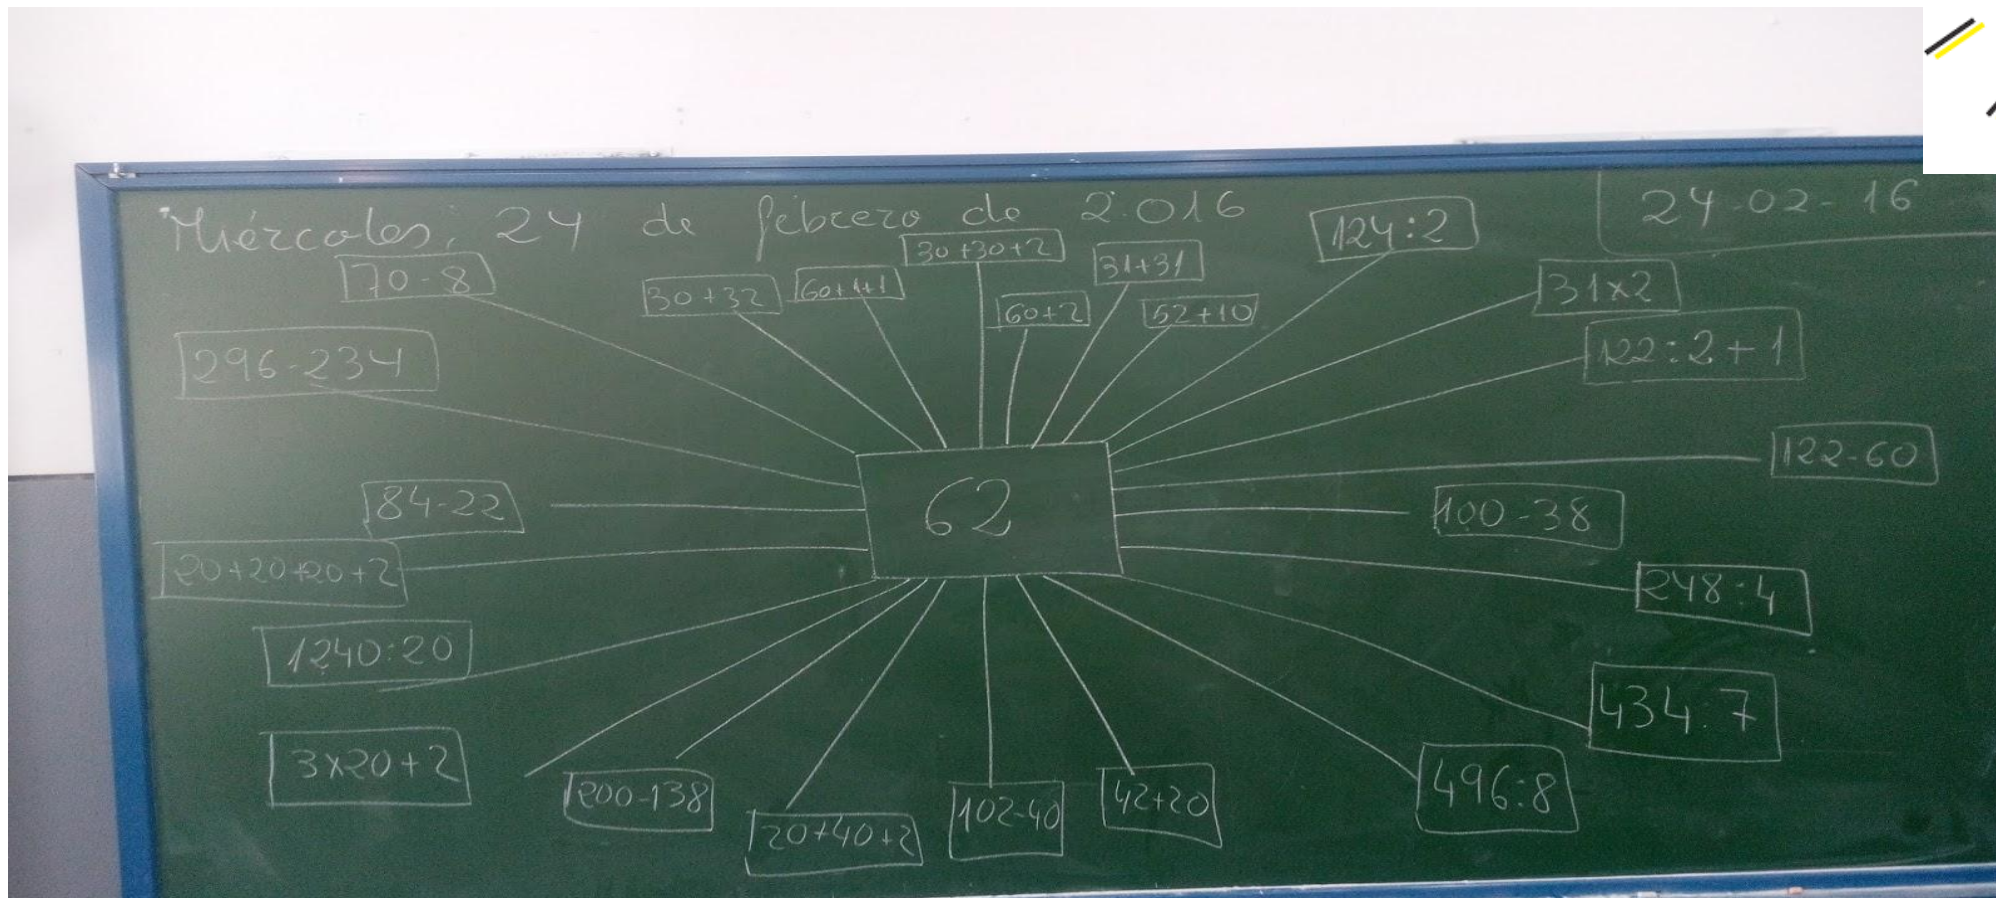 Miércoles, 24 de febrero de 2.016
24-02-16
124:2
30+30+2
31+31
70-8
30+32
60+1+1
60+2
52+10
31x2
296-234
122:2+1
122-60
84-22
62
100-38
20+20+20+2
248:4
1240:20
434:7
3x20+2
200-138
20+40+2
102-40
42+20
496:8